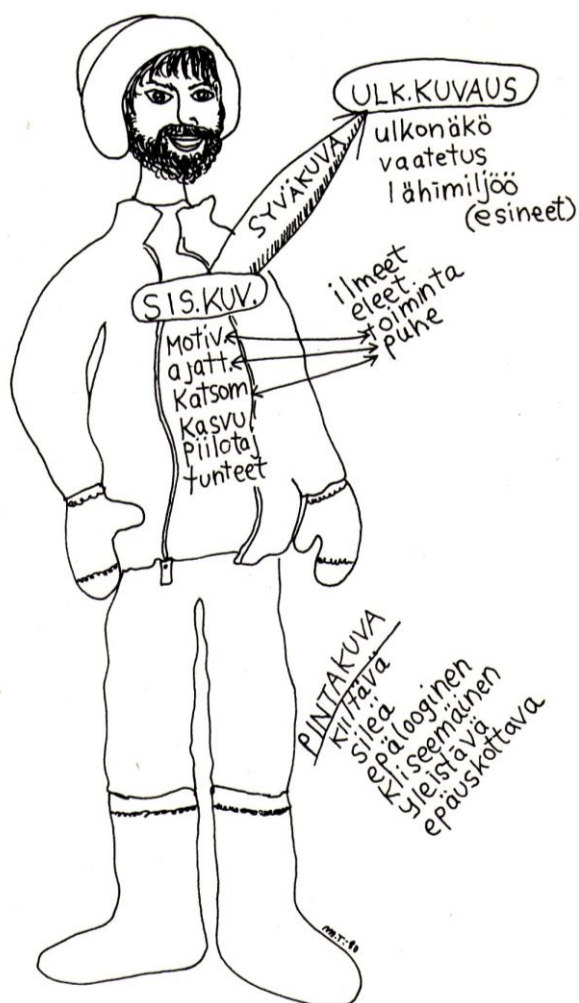 ULK.KUVAUS
ulkonäkö
vaatetus
lähimiljöö
(esineet)
SYVÄKUVA
SIS.KUV.
Motiv.
ajatt.
Katsom
Kasvu
piilotaj
tunteet
ilmeet
eleet
toiminta
puhe
PINTAKUVA
kiiltävä
sileä
epälooginen
kliseemäinen
yleistävä
epäuskottava
M.T.-80